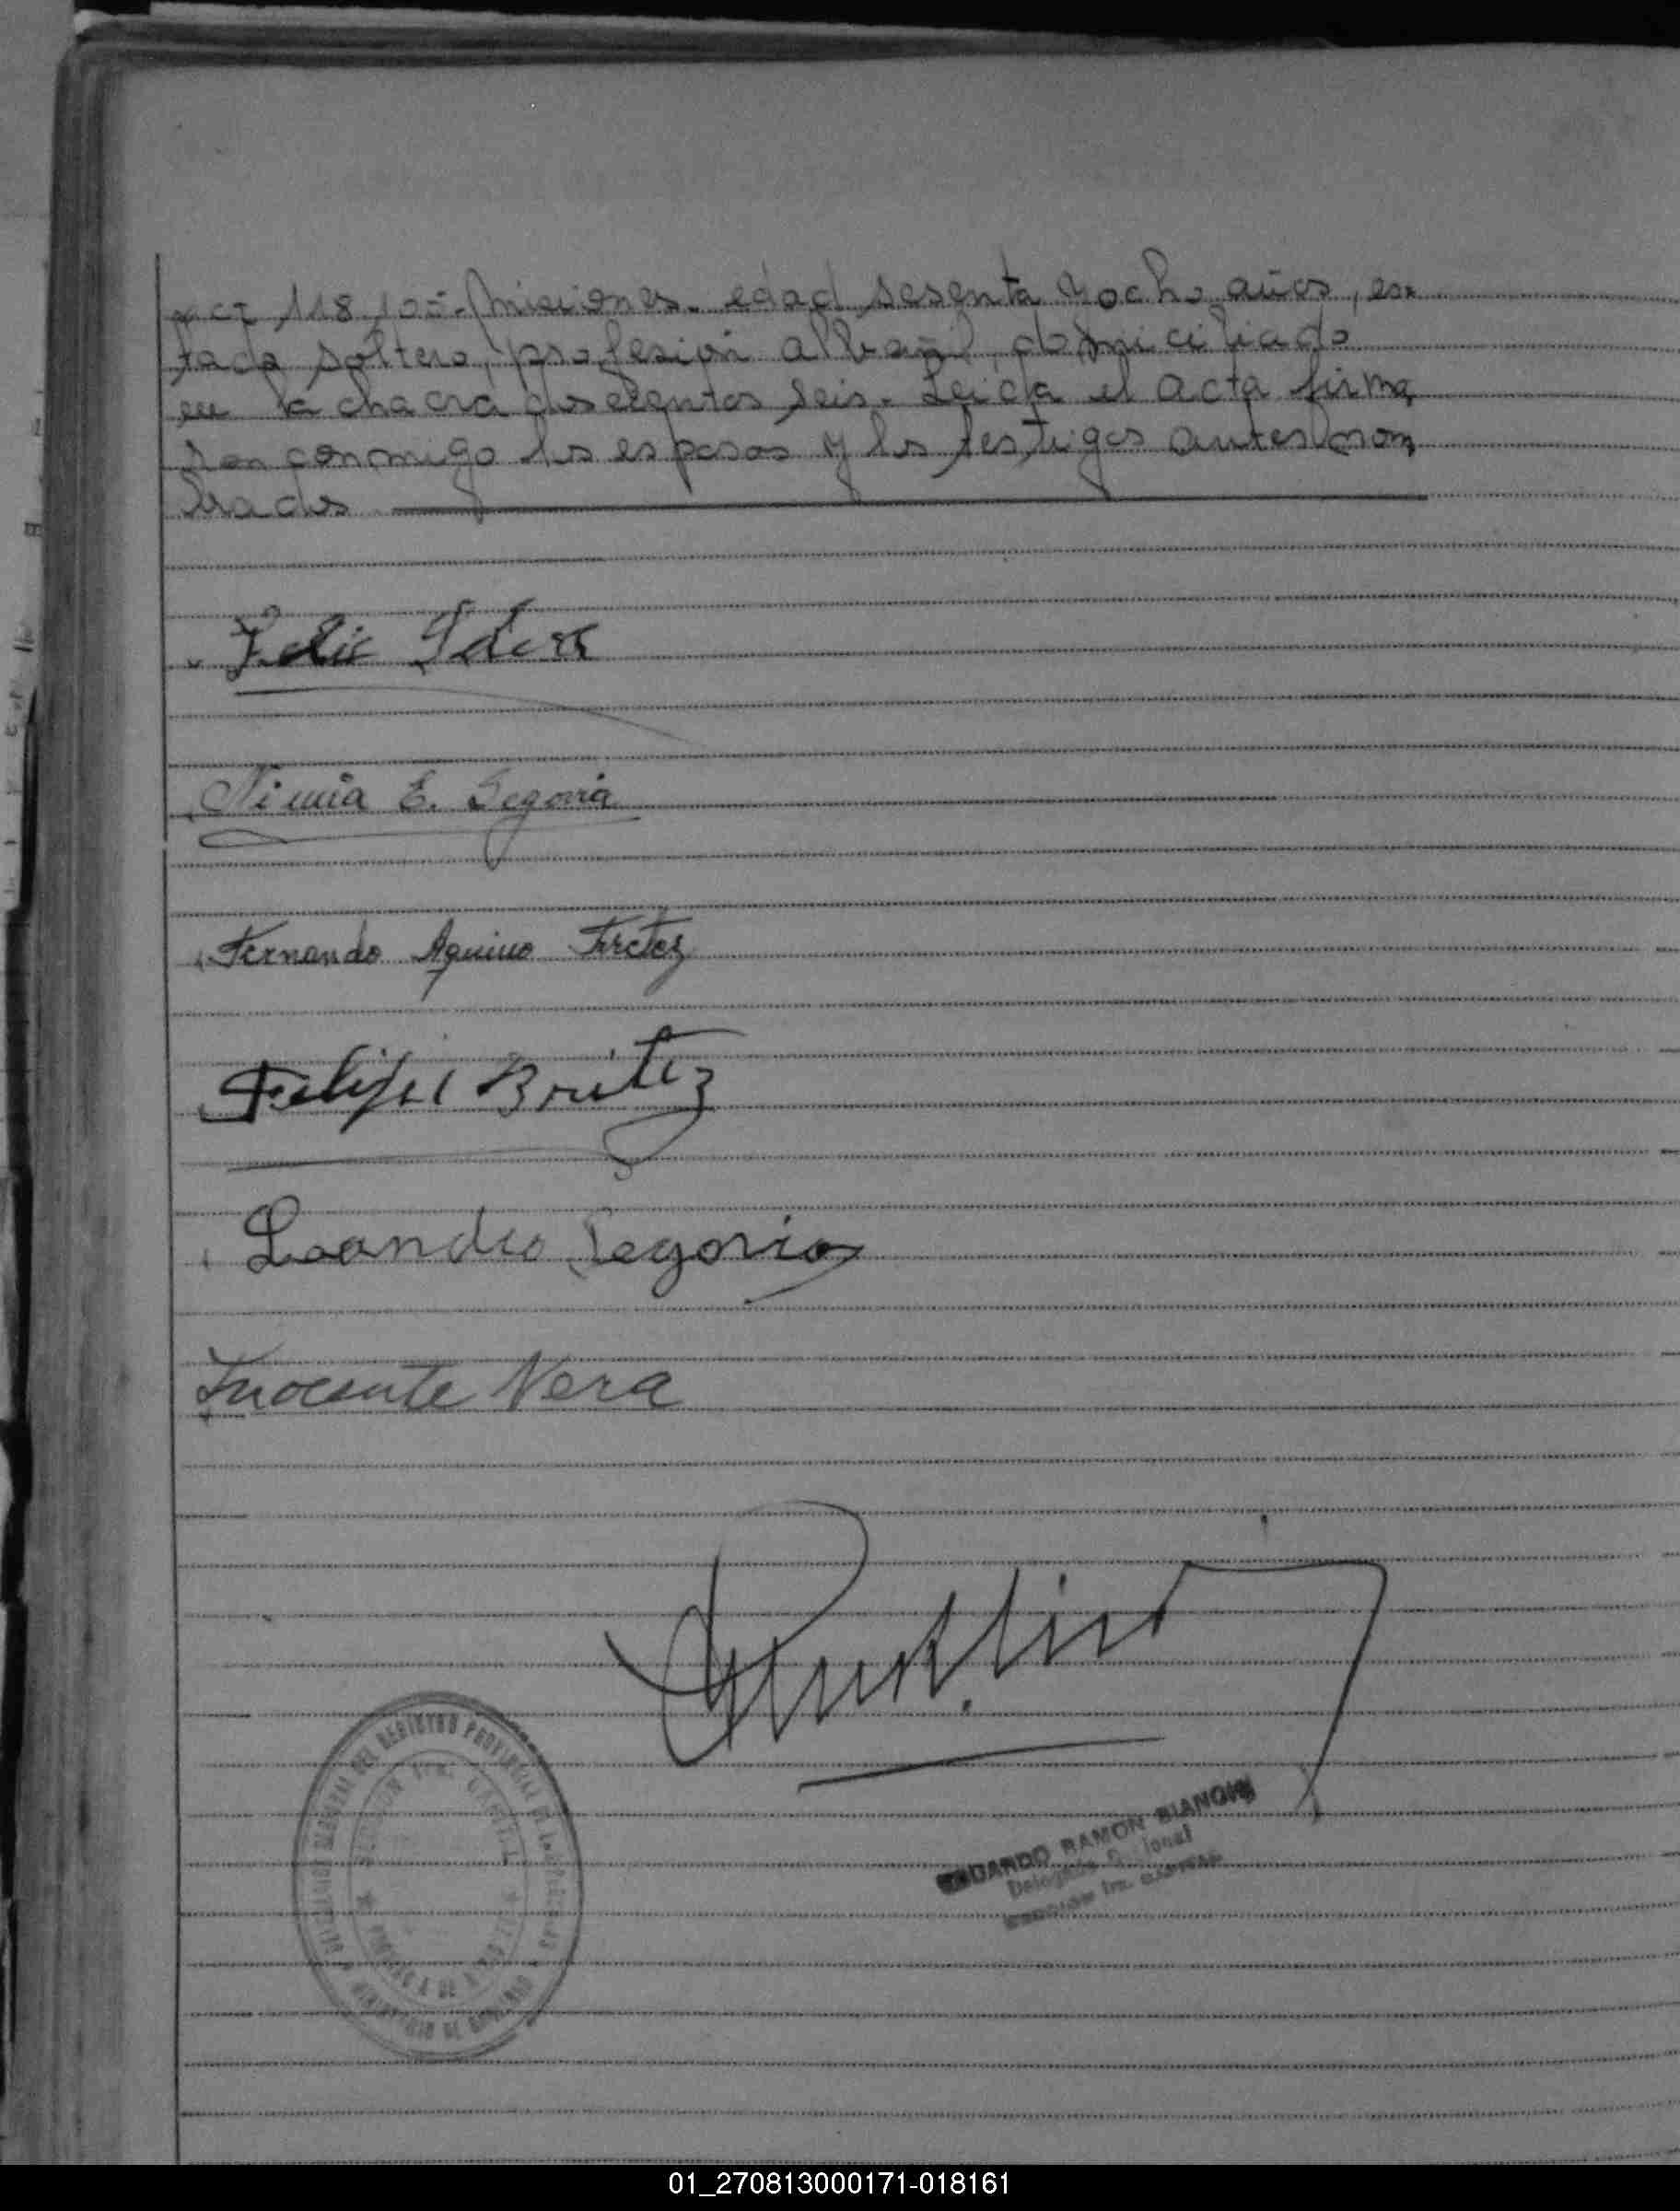 118,105.- Misiones. edad sesenta y ocho años, es=
tado soltero, profesión albañil, domiciliado
en la chacra doscientos seis. Leida el acta firma
ron conmigo los esposos y los testigos antes nom
brados
Nimia E. Segovia
Fernando Aquino
Felipe Britez
Leandro Segovia
Inocente Vera
DEL REGISTRO PROVINCIAL DE LAS PERSONAS
MINISTERIO DE GOBIERNO
EDUARDO RAMON BIANCHI
01_270813000171-018161